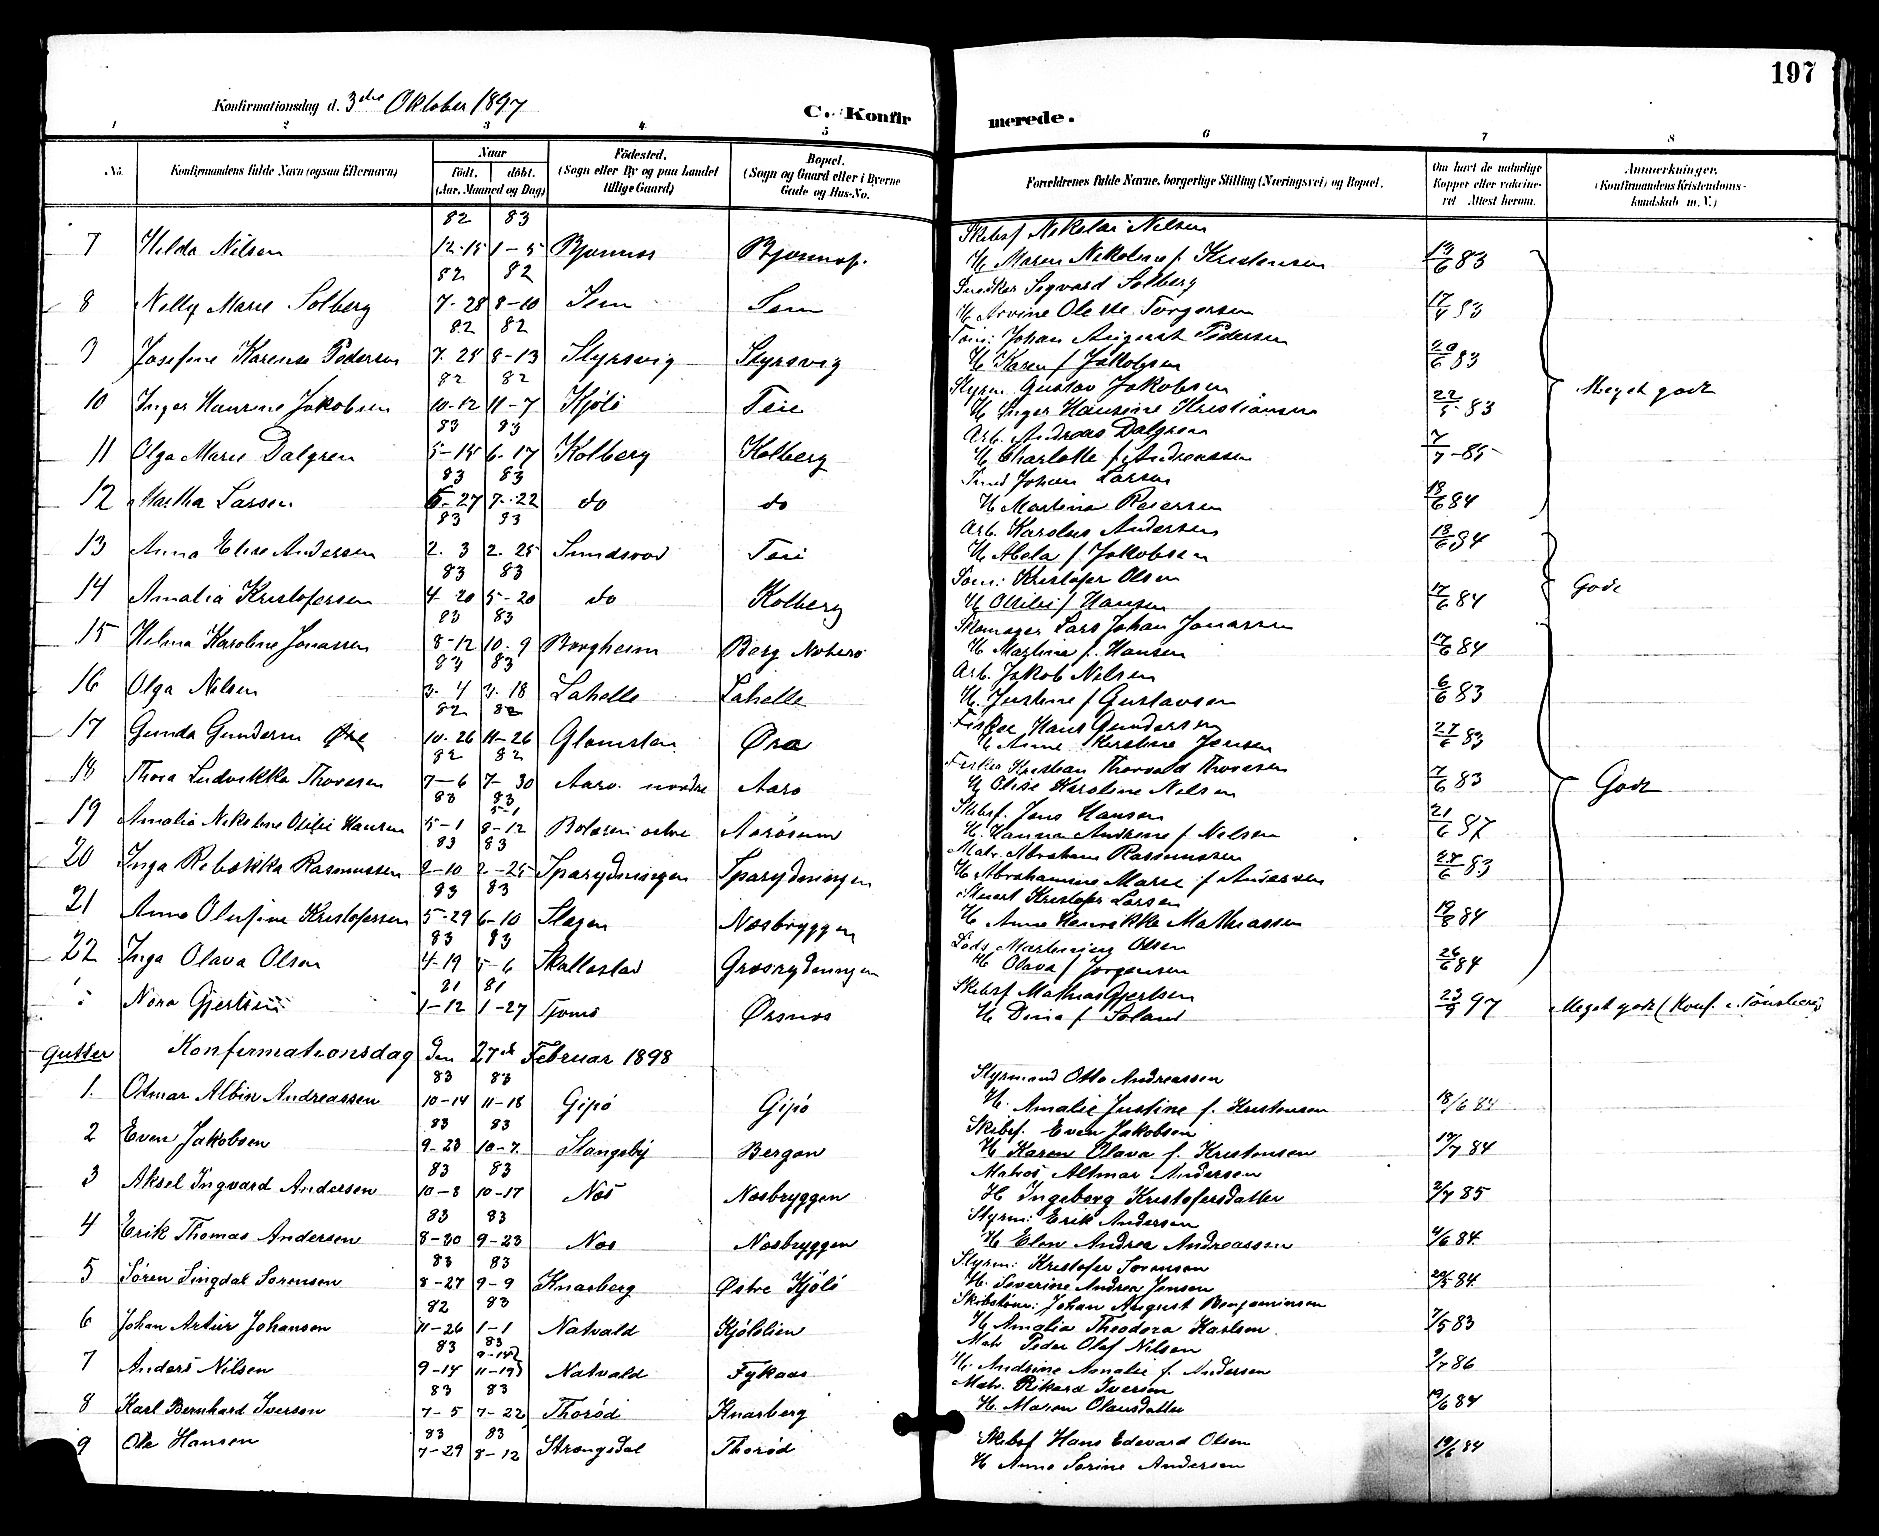 197
Konfirmationsdag d. 3die Oktober 1897 C. Konfirmerede.
1 2 3 4 5 6 7 8
No. Konfirmandens fulde Navn (ogsaa Efternavn) Naar Födt. döbt. (Aar, Maaned og Dag) Födested. (Sogn eller By og paa Landet tillige Gaard) Bopæl. (Sogn og Gaard eller i Byerne Gade og Hus-No. Forældrenes fulde Navne, borgerlige Stilling (Næringsvei) og Bopæl. Om havt de naturlige Kopper eller vakcineret Attest herom. Anmærkninger, (Konfirmandens Kristendomskundskab m. V.)
82 83 Skibsf Nikolai Nilsen
7 Hilda Nilsen 12-15 1-5 Bjonnes Bjonnes. H. Maren Nikoline f. Kristensen 19/6 83
82 82 Snedker Sigvard Solberg
8 Nelly Marie Solberg 7-28 8-10 Sem Sem H. Arvine Oleste Torgersen 17/7 83
82 82 Tøm: Johan August Pedersen
9 Josefine Karense Pedersen 7-28 8-13 Styrsvig Styrsvig H Karen f Jakobsen 20/6 83
82 82 Styrm Gustav Jakobsen
10 Inger Hansine Jakobsen 10-12 11-7 Kjölö Teie H Inger Hansine Kristiansen 22/5 83 Meget godt
83 83 Arb. Andreas Dalgren
11 Olga Marie Dalgren 5-18 6-17 Kolberg Kolberg H Charlotte f. Andreassen 7/7-85
83 83 Smed Johan Larsen
12 Martha Larsen 5-27 7-22 do do H Martina Reiersen 18/6 84
83 83 Arb. Karolus Andersen
13 Anna Elise Andersen 2-3 2-25 Smidsrød Teie H Abela f Jakobsen 18/6 84
83 83 Tøm: Kristofer Olsen
14 Amalia Kristofersen 4-20 5-20 do Kolberg H Ottilie f Hansen 17/6 84 Godt
83 83 Skomager Lars Johan Jonassen
15 Helma Karoline Jonassen 8-12 10-9 Borgheim Berg Nøterø H Martine f. Hansen 17/6 84
83 83 Arb. Jakob Nilsen
16 Olga Nilsen 3-4 3-18 Lahelle Lahelle H. Justine f Gustavsen 6/6 83
82 82 Fisker Hans Gundersen
17 Gunda Gundersen 10-26 11-26 Glomsten Øra H Anne Kristine Jensen 27/6 83
82 82 Fisker Kristian Thorvald Thoresen
18 Thora Ludvikka Thoresen 7-6 7-30 Aarø nordre Aarø H Elise Karoline Nilsen 7/6 83 Godt
83 83 5-1 Skibsf. Jens Hansen
19 Amalia Nikoline Otilie Hansen 5-1 8-12 Bolæren østre Aarösund H. Hanna Andrine f Nilsen 21/6 87
83 83 Matr. Abraham Rasmussen
20 Inga Rebekka Rasmussen 2-10 2-25 Sparydningen Sparydningen H Abrahamine Marie f Andersen 27/6 83
83 83 Kristofer Larsen
21 Anna Olufine Kristofersen 5-29 6-10 Slagen Næsbryggen H Anne Henrikke Mathiassen 19/8 84
83 83 Lods Martinius Olsen
22 Inga Olava Olsen 4-19 5-6 Skallestad Græsrydningen H Olava f Jørgensen 26/6 84
81 81 Skibsf Mathias Gjertsen
Nora Gjertsen 1-12 1-27 Tjømø Ørsnes H Dina f Soland 23/9 97 Meget godt (Konf. i Tønsberg)
Gutter Konfirmationsdag den 27de Februar 1898
83 83 Styrmand Otto Andreassen
1. Otmar Albin Andreassen 10-14 11-18 Gipö Gipö H. Amalie Justine f. Kristensen 18/6 84
83 83 Skibsf. Even Jakobsen
2 Even Jakobsen 9-23 10-7 Stangeby Bergan H Karen Olava f. Kristensen 19/7 84
83 83 Matros Altmar Andersen
3 Aksel Ingvard Andersen 10-8 10-17 Næs Næsbryggen H Ingeborg Kristofersdatter 2/7 85
83 83 Styrm: Erik Andersen
4 Erik Thomas Andersen 8-20 9-23 Næs Næsbryggen H Elen Andrea Andreassen 4/6 84
83 83 Styrm: Kristofer Sørensen
5 Søren Lingdal Sørensen 8-27 9-9 Knarberg Østre Kjölö H. Severine Andrea Jensen 20/5 84
82 83 Skibstøm: Johan August Benjaminsen
6 Johan Artur Johansen 11-26 1-1 Natvald Kjölelien H. Amalia Theodora Karlsen 7/5 83
83 83 9-14 Matr Peder Olaf Nilsen
7 Anders Nilsen 9-14 11-19 Natvald Fykaas H. Andrine Amalie f. Andersen 9/7 86
83 83 Matr. Rikard Iversen
8 Karl Bernhard Iversen 7-5 7-22 Thorød Knarberg H. Maren Olausdatter 19/6 84
83 83 Skibsf Hans Edevard Olsen
9 Ole Hansen 7-29 8-12 Strengsdal Thorød H Anne Sorine Andersen 19/6 84